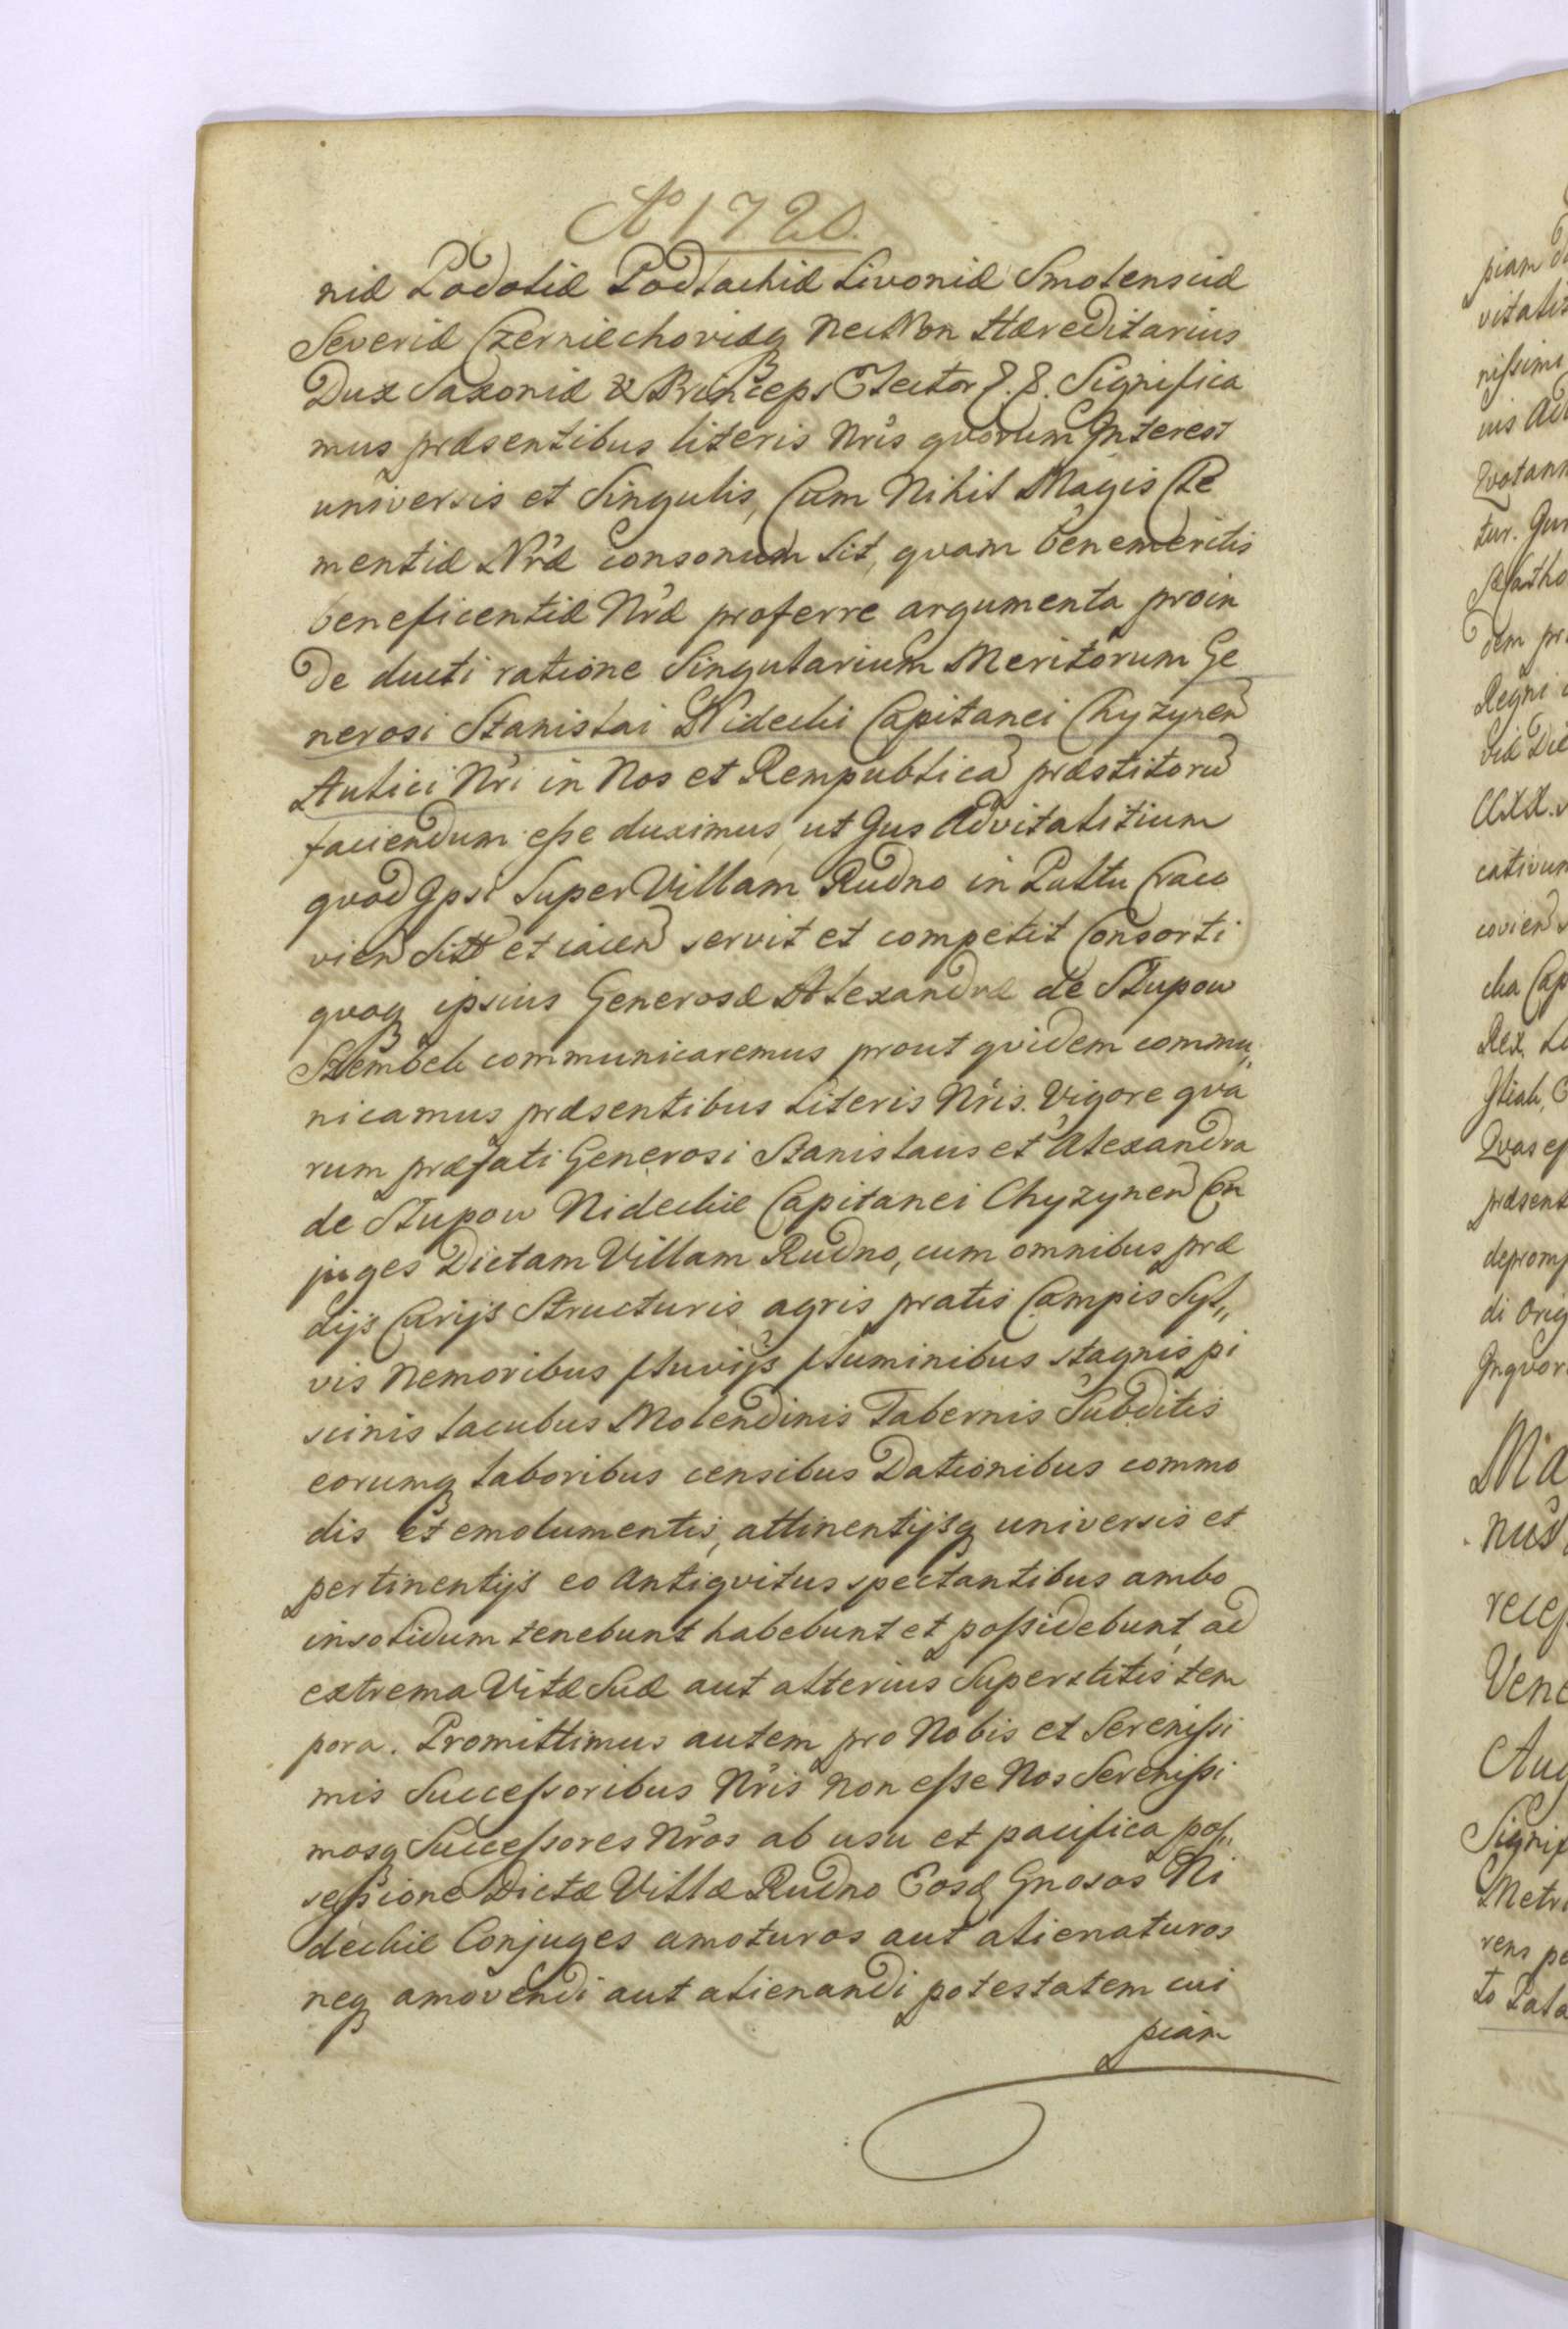 A° 1720.
niæ Podoliæ Podlachiæ Livoniæ Smolensciæ
Severiæ Czerniechoviæq Nec Non Hæreditarius
Dux Saxoniæ & Princeps Elector &. &. Significa
mus præsentibus literis Nris quorum Interest
universis et Singulis, Cum Nihil Magis Cle
mentiæ Nræ consonum sit, quam benemeritis
beneficentiæ Nræ proferre argumenta proin
de ducti ratione Singularium Meritorum Ge
nerosi Stanislai Nidecki Capitanei Chyzynen
Aulici Nri in Nos et Rempublica præstitoru
faciendum esse duximus, ut Jus Advitalitium
quod Ipsi Super Villam Rudno in Pallu Craco
vien Sitt et iacen servit et competit Consorti
quoq ipsius Generosæ Alexandræ de Słupow
Szembek communicaremus prout quidem commu„
nicamus præsentibus Literis Nris. Vigore quа
rum præfati Generosi Stanislaus et Alexandra
de Słupow Nideckie Capitanei Chyzynen Con
juges Dictam Villam Rudno, cum omnibus præ
dijs Curijs Structuris agris pratis Campis Syl„
vis Nemoribus fluvijs fluminibus stagnis pi
scinis lacubus Molendinis Tabernis Subditis
eorumq laboribus censibus Dationibus commo
dis et emolumentis, attinentijsq universis et
pertinentijs eo Antiquitus spectantibus ambo
insolidum tenebunt habebunt et possidebunt, ad
extrema Vitæ Suæ aut alterius Superstitis tem
pora. Promittimus autem pro Nobis et Serenissi
mis Successoribus Nris Non esse Nos Serenissi
mosq Successores Nros ab usu et pacifica pos„
sessione Dictæ Villæ Rudno Eosd Gnosos Ni
deckie Conjuges amoturos aut alienaturos
neq amovendi aut alienandi potestatem cui
piam